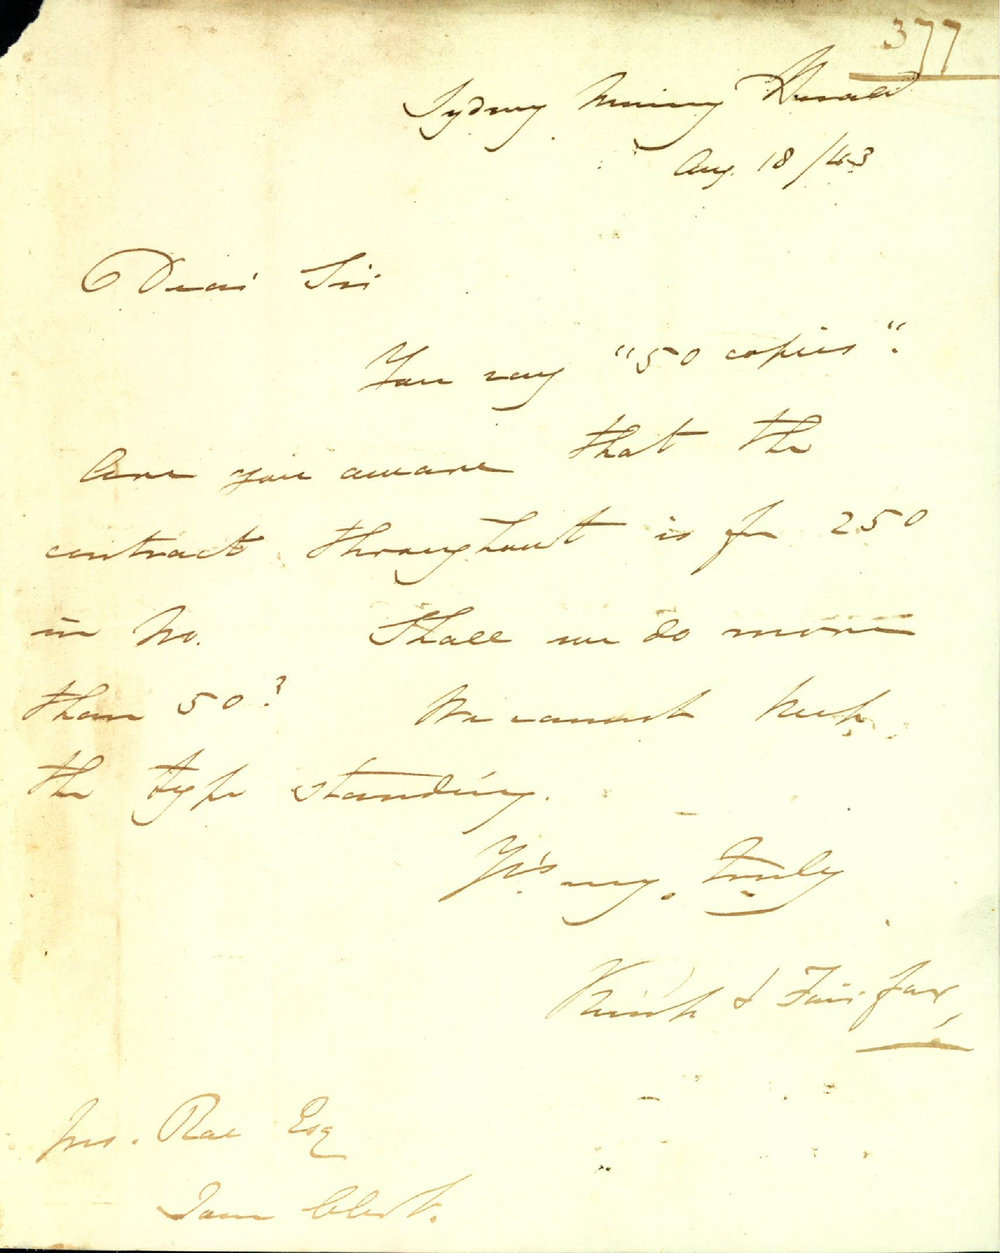 377
Sydney Morning Herald
Aug. 18/43
Dear Sir
You say "50 copies".
Are you aware that the
contract throughout is for 250
in No. Shall we do more
than 50? We cannot keep
the type standing.
Yrs. very truly
Kemp & Fairfax
Jno. Rae Esq
Town Clerk.